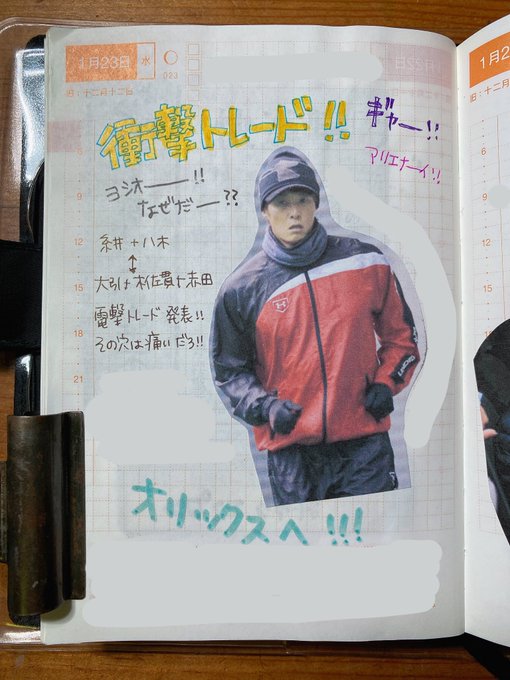 1月23日 水
023
旧:十二月十二日
衝撃トレード!!
ギャー!!
アリエナーイ!!
ヨシオ――!!
なぜだー??
糸井+八木
↕
大引+木佐貫+赤田
電撃トレード発表!!
その穴は痛いだろ!!
オリックスへ!!!
6
9
12
15
18
21
1月2
旧:十二月
6
9
12
15
18